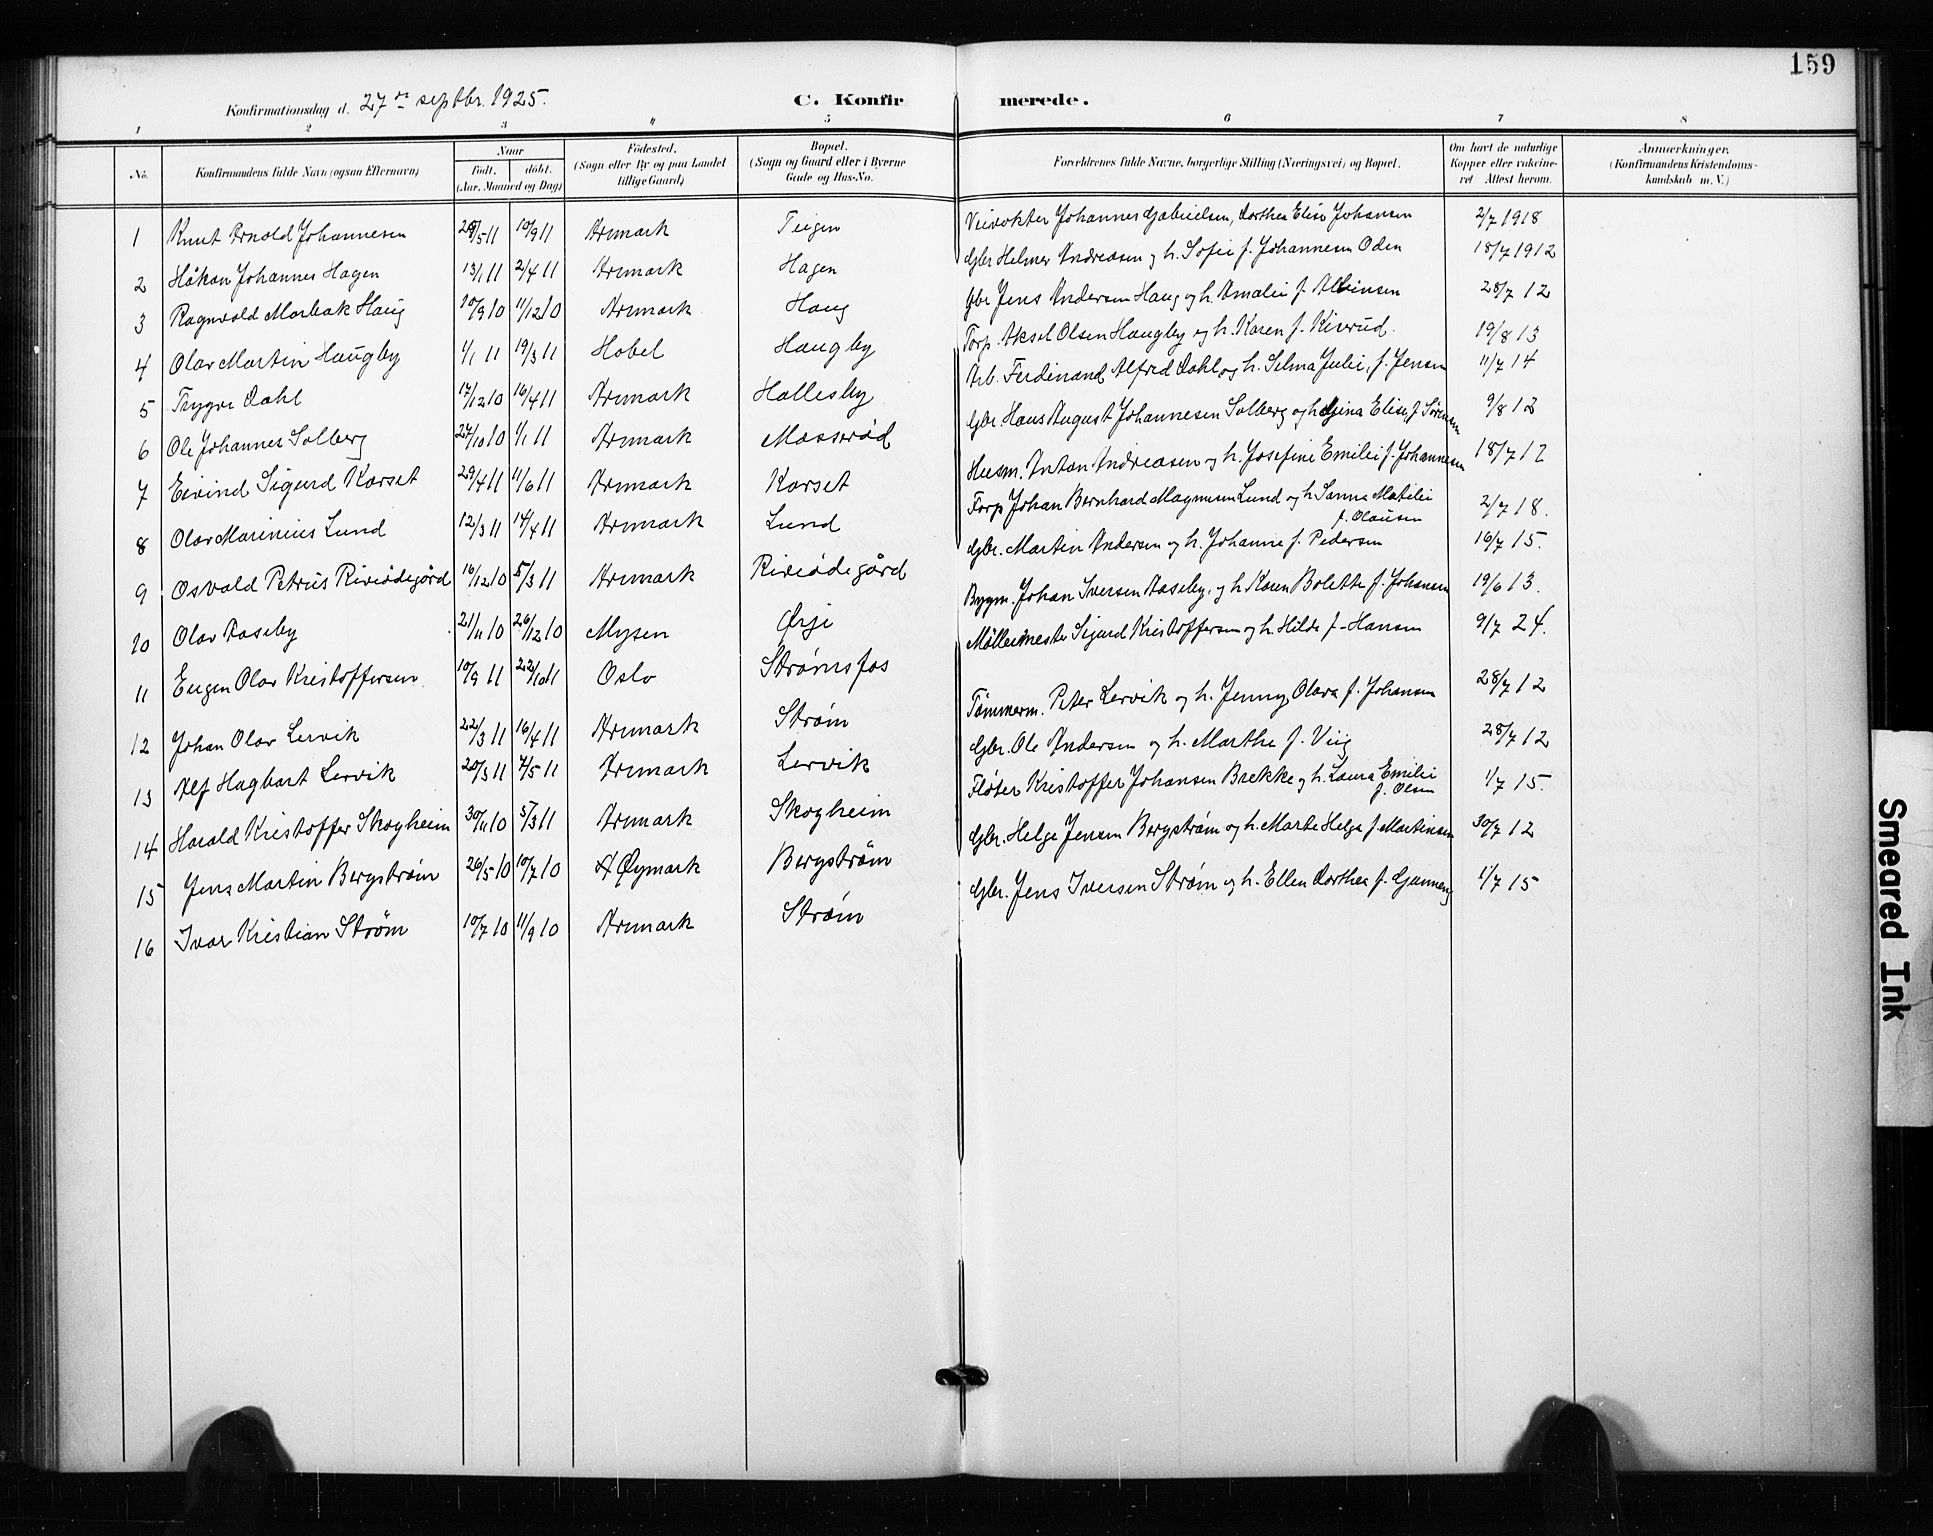 159
Konfirmationsdag d. 27de septbr. 1925. C. Konfirmerede.
1 2 3 4 5 6 7 8
No. Konfirmandens fulde Navn (ogsaa Efternavn) Naar født. døbt. (Aar, Maaned og Dag) Fødested. (Sogn eller By og paa Landet tillige Gaard) Bopæl. (Sogn og Gaard eller i Byerne Gade og Hus-No. Forældrenes fulde Navne, borgerlige Stilling (Næringsvei) og Bopæl. Om havt de naturlige Kopper eller vaccineret Attest herom. Anmerkninger. (Konfirmandens Kristendomskundskab m. V.)
1 Knut Arnold Johannesen 28/5 11 10/9 11 Aremark Teigen Veivokter Johannes Gabrielsen, Dorthea Elise Johansen 2/7 1918
2 Håkon Johannes Hagen 13/1 11 2/4 11 Aremark Hagen Gbr. Helmer Andreasen og h. Sofie f. Johannesen Oden 18/7 1912
3 Ragnvald Marbak Haug 10/9 10 11/12 10 Aremark Haug Gbr. Jens Andersen Haug og h. Amalie f. Albinsen 28/7 12
4 Olav Martin Haugby 1/1 11 19/3 11 Hobøl Haugby Forp. Aksel Olsen Haugby og h. Karen f. Kiserud. 19/8 13
5 Trygve Dahl 17/12 10 16/4 11 Aremark Hallesby Arb. Ferdinand Alfred Dahl og h. Selma Julie, f. Jensen 11/7 14
6 Ole Johannes Solberg 27/10 10 1/1 11 Aremark Mosserød Gbr. Hans August Johannesen Solberg og h. Gina Elise f. Sørensen 9/8 12
7 Eivind Sigurd Korset 29/4 11 11/6 11 Aremark Korset Husm. Anton Andreasen og h. Josefine Emilie f. Johannesen 18/7 12
8 Olav Marinius Lund 12/3 11 14/4 11 Aremark Lund Forp. Johan Bernhard Magnusen Lund og h. Sanna Matilie f. Olausen 2/7 18.
9 Osvald Petrus Riviødegård 16/12 10 5/3 11 Aremark Riviødegård Gbr. Martin Andersen og h. Johanne f. Pedersen 16/7 15.
10 Olav Aaseby 21/11 10 26/12 10 Mysen Ørje Bygm. Johan Iversen Aaseby, og h. Karen Bolette f. Johansen 19/6 13.
11 Eugen Olav Kristoffersen 10/9 11 22/10 11 Oslo Strømsfos Møllemester Sigurd Kristoffersen og h. Hilda f. Hansen 9/7 24.
12 Johan Olav Lervik 22/3 11 16/4 11 Aremark Strøm Tømmerm. Peter Lervik og h. Jenny Olava f. Johansen 28/7 12
13 Alf Hagbart Lervik 20/3 11 7/5 11 Aremark Lervik Gbr. Ole Andersen og h. Marthe f. Viig 28/7 12
14 Harald Kristoffer Skogheim 30/11 10 5/3 11 Aremark Skogheim Fløter Kristoffer Johansen Brekke og h. Laura Emilie f. Olsen 1/7 15.
15 Jens Martin Bergstrøm 26/5 10 10/7 10 Øymark Bergstrøm Gbr. Helge Jensen Bergstrøm og h. Marte Helga f. Martinsen 30/7 12
16 Ivar Kristian Strøm 10/7 10 11/9 10 Aremark Strøm Gbr. Jens Iversen Strøm og h. Ellen Dorthea f. Gunneng 1/7 15
Smeared Ink